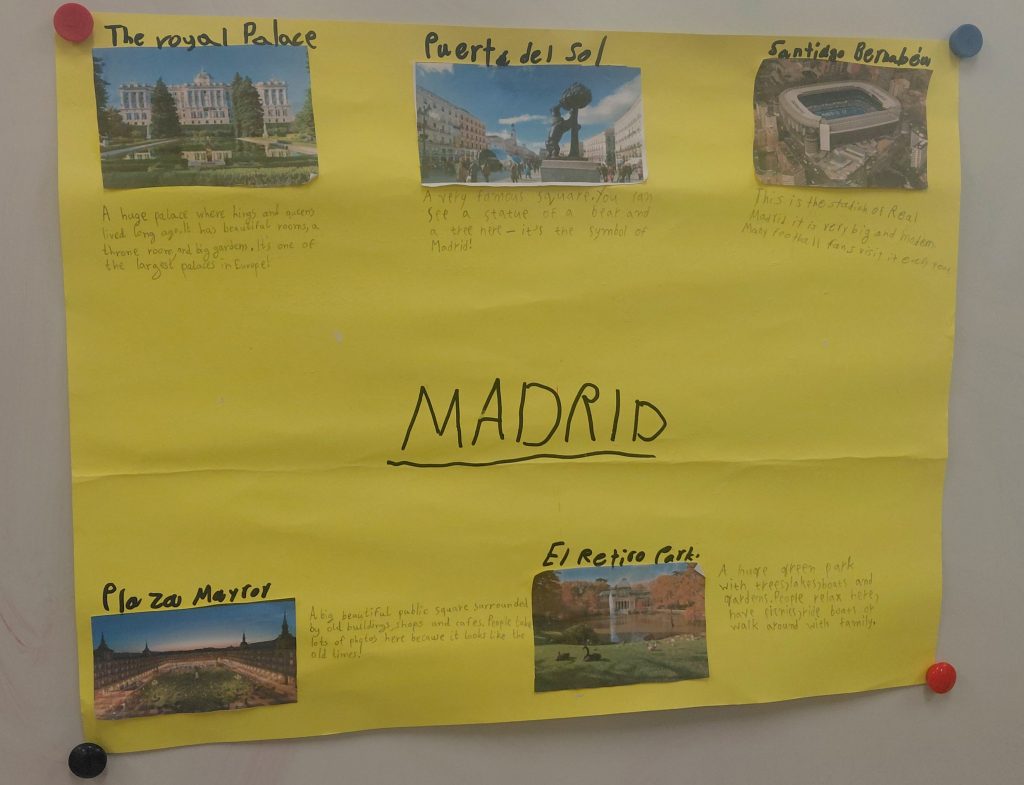 The royal Palace
A huge palace where kings and queens
lived long ago. It has beautiful rooms, a
throne room, and big gardens. It's one of
the largest palaces in Europe!
Puerta del Sol
A very famous square. You can
see a statue of a bear and
a tree here - it's the symbol of
Madrid!
Santiago Bernabéu
This is the stadium of Real
Madrid it is very big and modern.
Many football fans visit it each year
MADRID
Plaza Mayror
A big beautiful public square surrounded
by old buildings, shops and cafes. People take
lots of photos here because it looks like the
old times!
El Retiro Park.
A huge green park
with trees, lakes, boats and
gardens. People relax here,
have picnics, ride boats or
walk around with family.